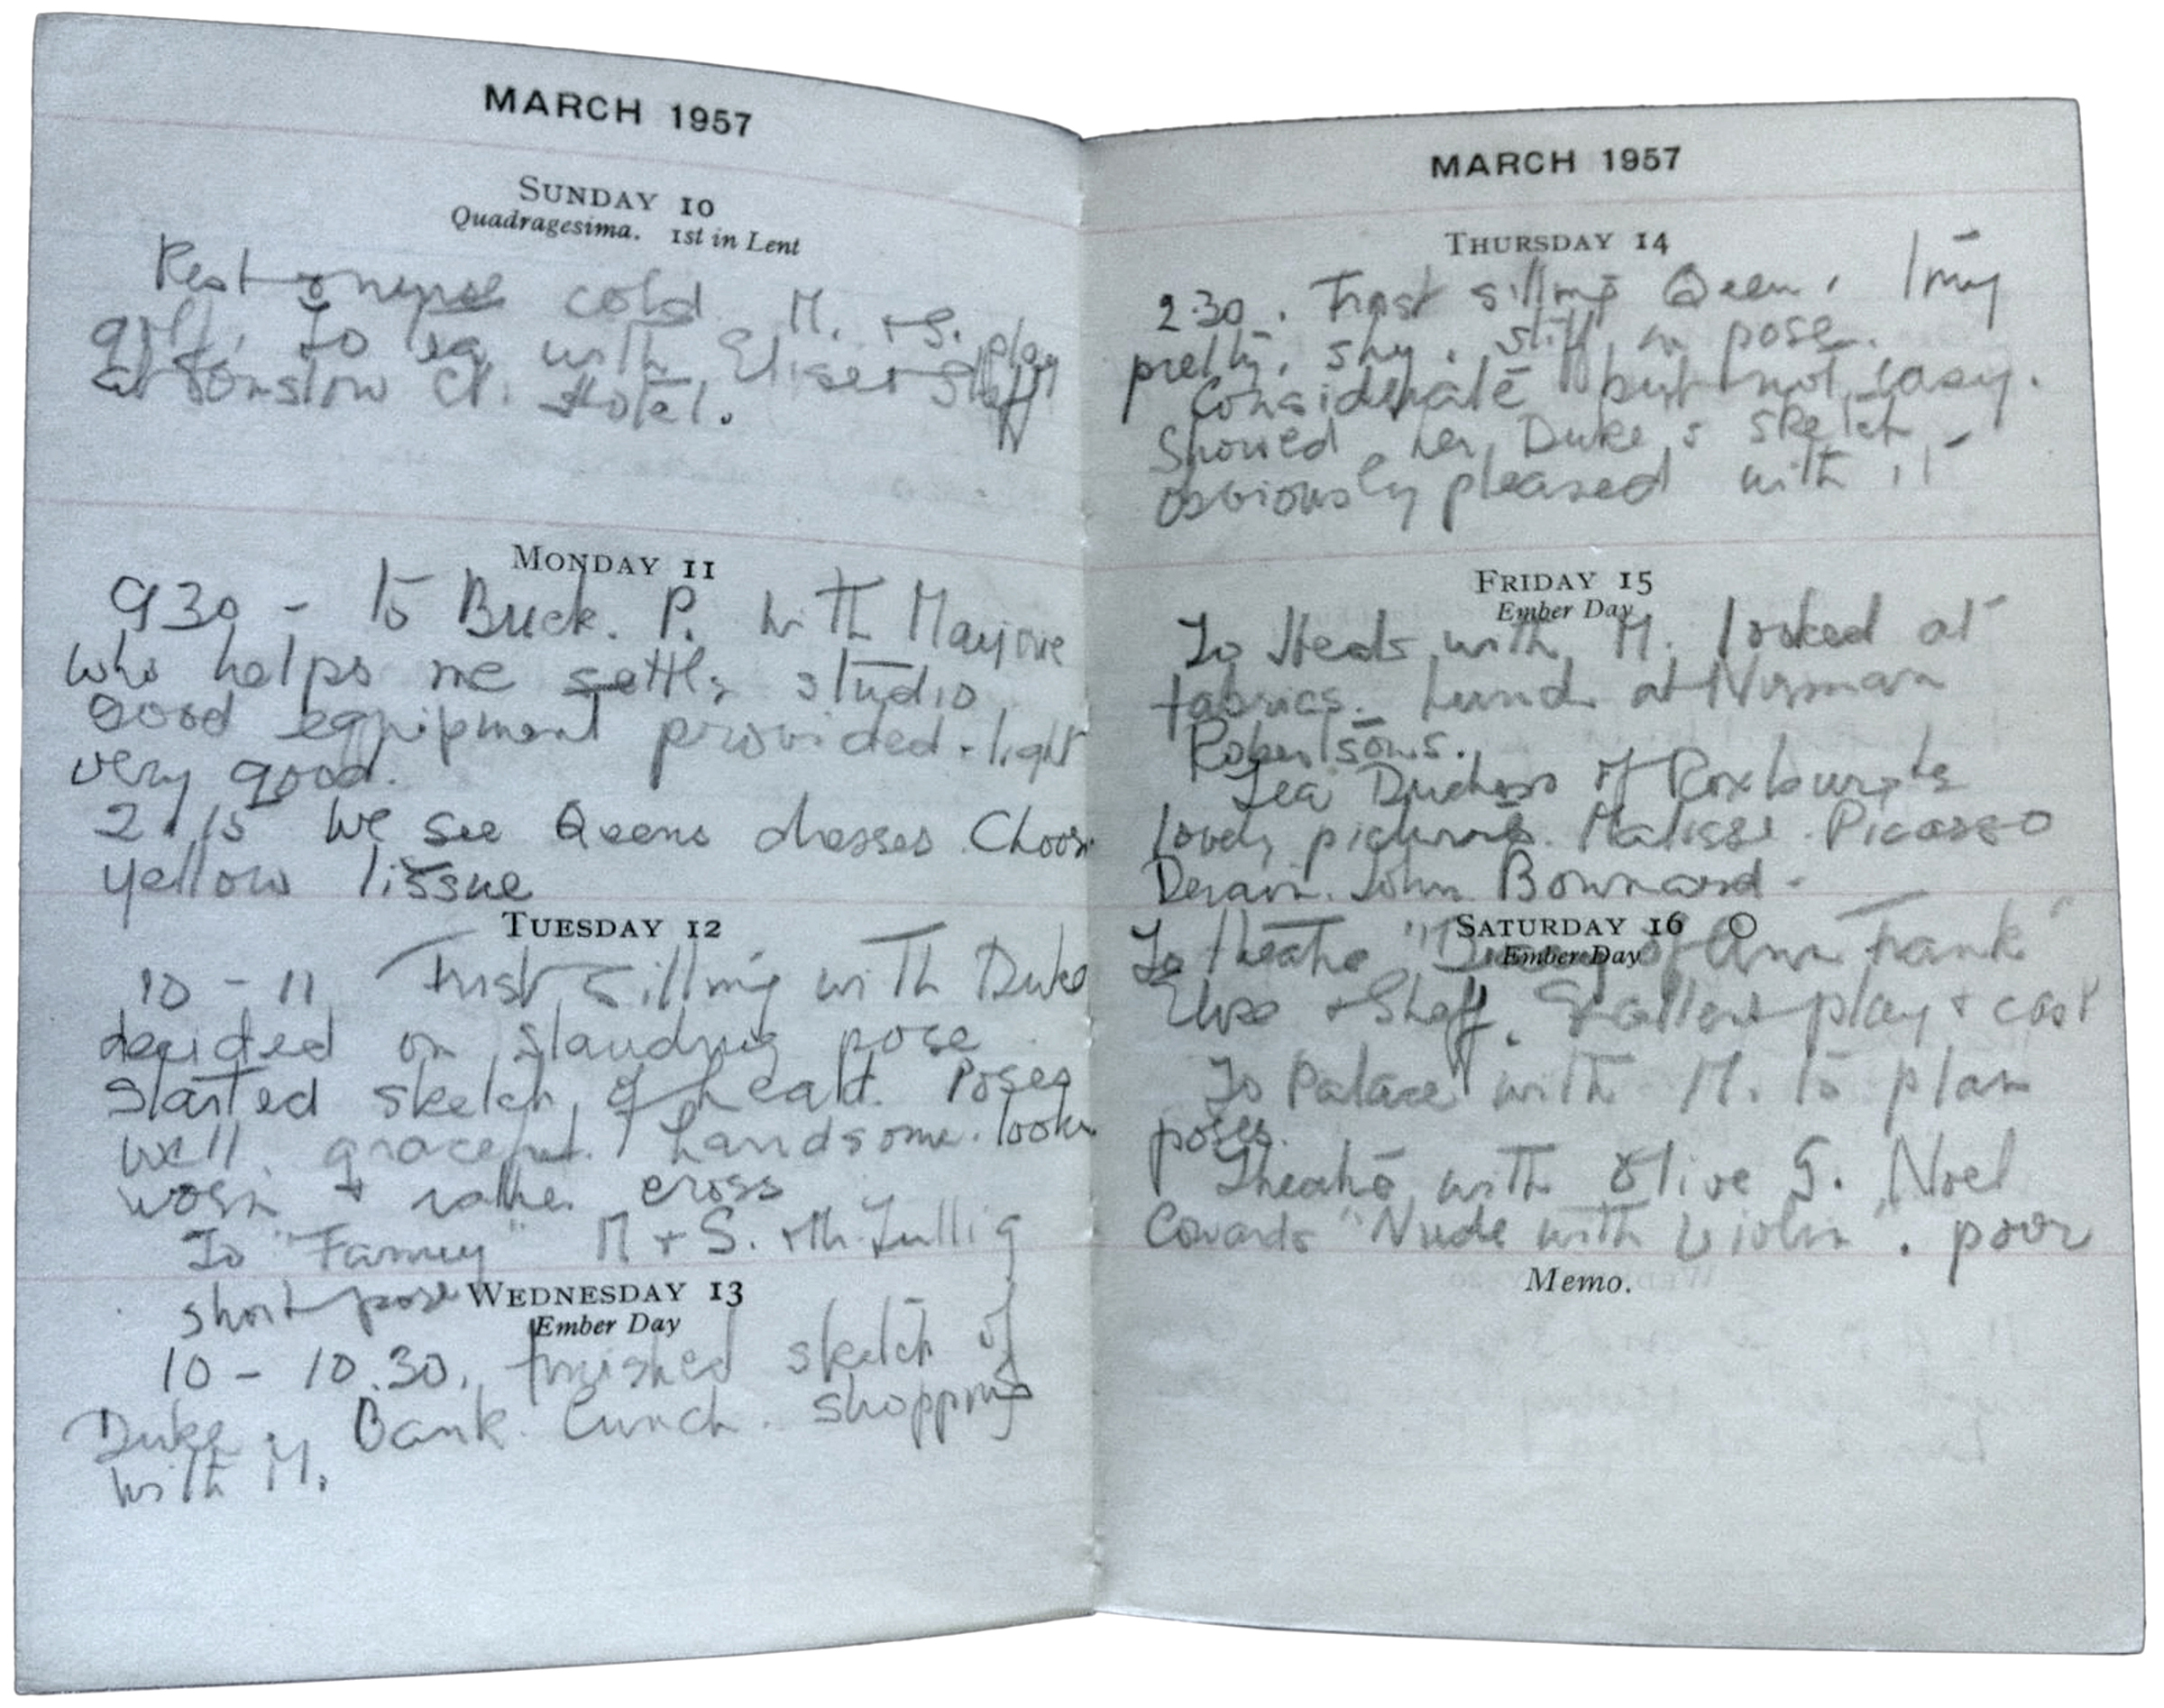 MARCH 1957
SUNDAY 10
Quadragesima. 1st in Lent
Rest + nurse cold. M. + S. play
golf. To tea with Elise + Shaff
at Onslow Ct. Hotel.
MONDAY 11
930 - to Buck. P. with Marjorie
who helps me settle studio
Good equipment provided - light
very good.
2.15 We see Qeens dresses. Choose
yellow tissue
TUESDAY 12
10 - 11 First sitting with Duke
decided on standing pose
started sketch of head. Poses
well. graceful. handsome. looks
worn + rather cross
To "Fanny" M + S. + Mr.
short pose
WEDNESDAY 13
Ember Day
10 - 10.30. finished sketch of
Duke. Bank. Lunch. shopping
with M.
MARCH 1957
THURSDAY 14
2.30. First sitting Qeen. tiny
pretty, shy. stiff in pose.
Considerate but not easy.
Showed her Duke's sketch -
obviously pleased with it
FRIDAY 15
Ember Day
To Heals with M. looked at
fabrics. Lunch at Norman
Robertsons.
Tea Duchess of Roxburghe
lovely pictures. Matisse. Picasso
Derain. John Bonnard -
SATURDAY 16
Ember Day
To theatre "Diary of Ann Frank"
Elise + Shaff. Excellent play + cast
To Palace with M. to plan
poses.
Theatre with Olive S. Noel
Cowards "Nude with Violin". poor
Memo.